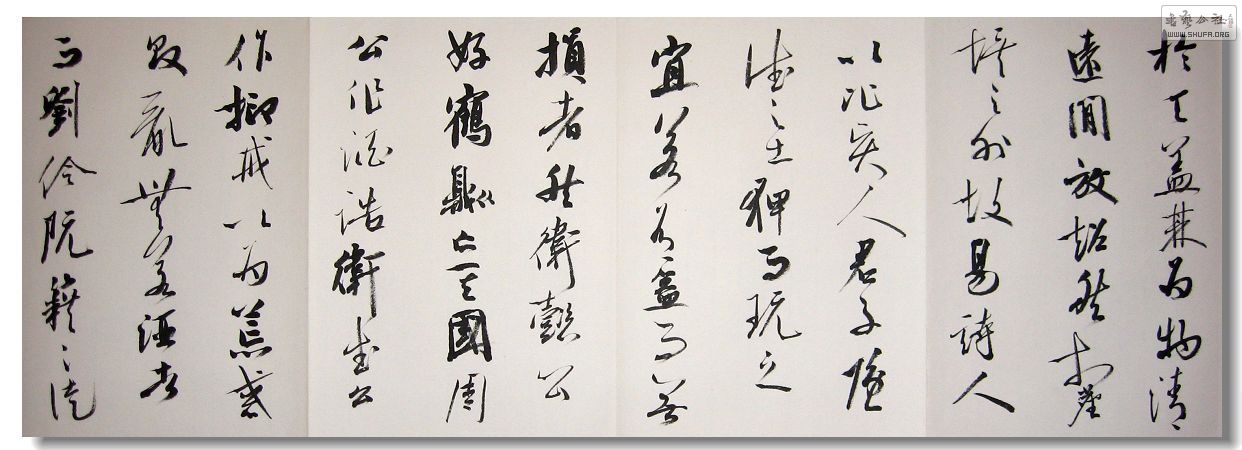 於天蓋其為物清
遠閒放超然於塵
埃之外故易詩人
以比賢人君子隱
德之士狎而玩之
宜若有益而無
損者然衛懿公
好鶴則亡其國周
公作酒誥衛武公
作抑戒以為荒惑
敗亂無若酒者
而劉伶阮籍之徒
书艺公社
WWW.SHUFA.ORG